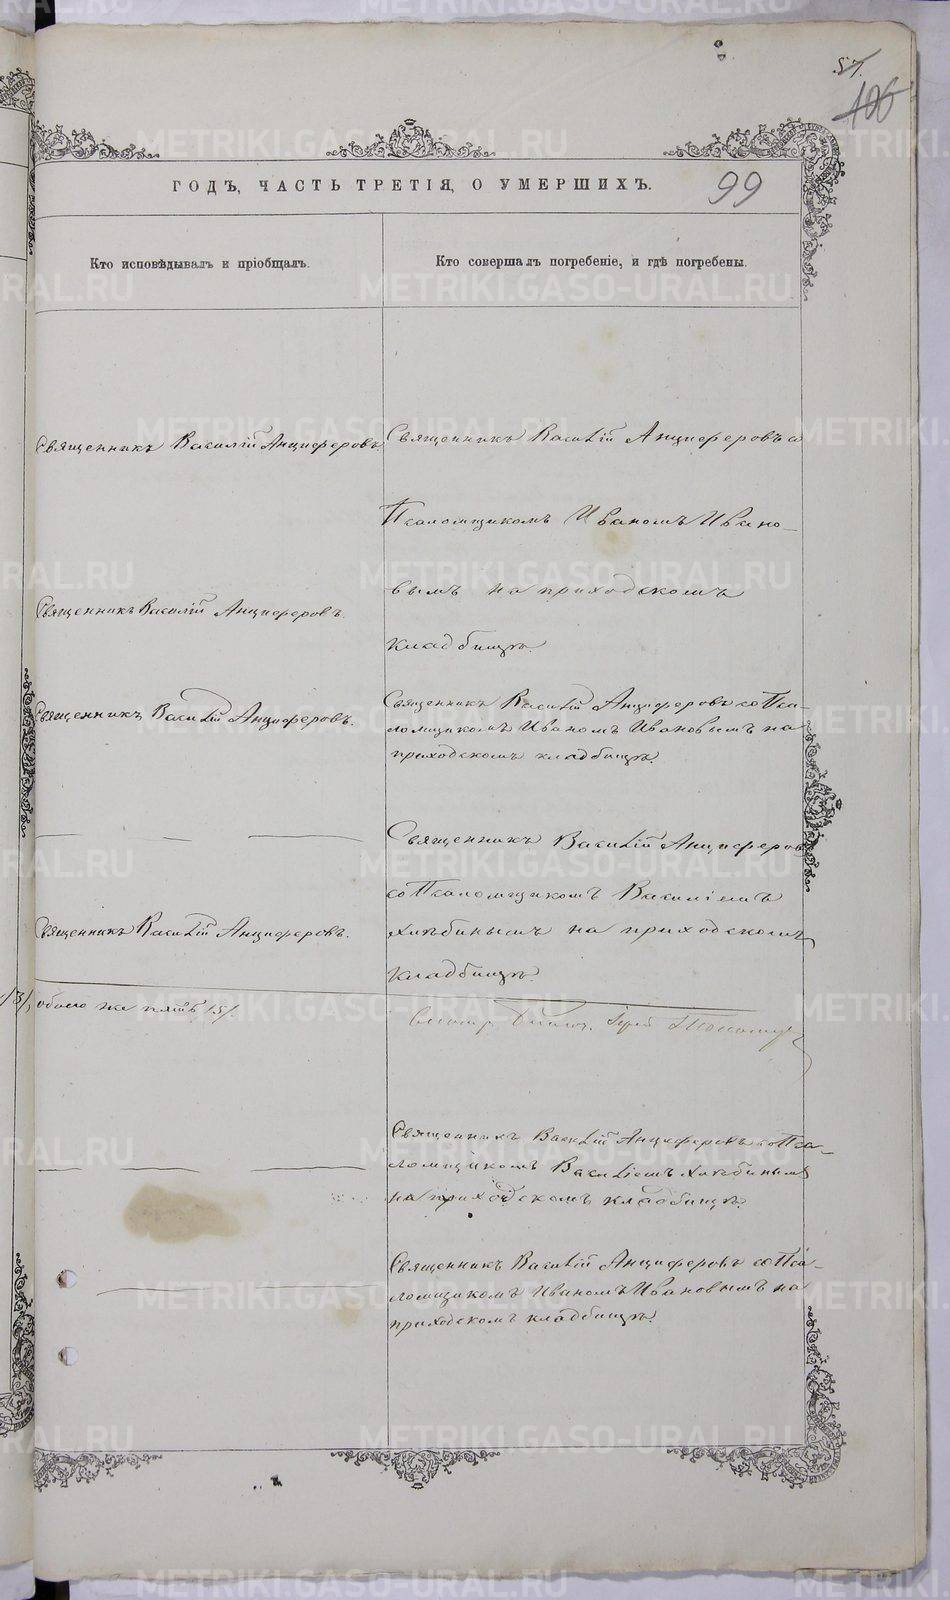 57.
106
ГОДЪ, ЧАСТЬ ТРЕТІЯ, О УМЕРШИХЪ.
99
Кто исповѣдывалъ и пріобщалъ.
Кто совершалъ погребеніе, и гдѣ погребены.
Священникъ Василій Анциферовъ.
Священникъ Василій Анциферовъ.
Священникъ Василій Анциферовъ.
Священникъ Василій Анциферовъ.
/3/, обоего же пять /5/.
Священникъ Василій Анциферовъ со
Псаломщикомъ Иваномъ Ивано-
вымъ на приходскомъ
кладбищѣ.
Священникъ Василій Анциферовъ со Пса-
ломщикомъ Иваномъ Ивановымъ на
приходскомъ кладбищѣ.
Священникъ Василій Анциферов
со Псаломщикомъ Василіемъ
Хлѣбинымъ на приходскомъ
кладбищѣ.
Священникъ Василій Анциферовъ со Пса-
ломщикомъ Василіемъ Хлѣбинымъ
на приходскомъ кладбищѣ.
Священникъ Василій Анциферовъ со Пса-
ломщикомъ Иваномъ Ивановымъ на
приходскомъ кладбищѣ.
METRIKI.GASO-URAL.RU